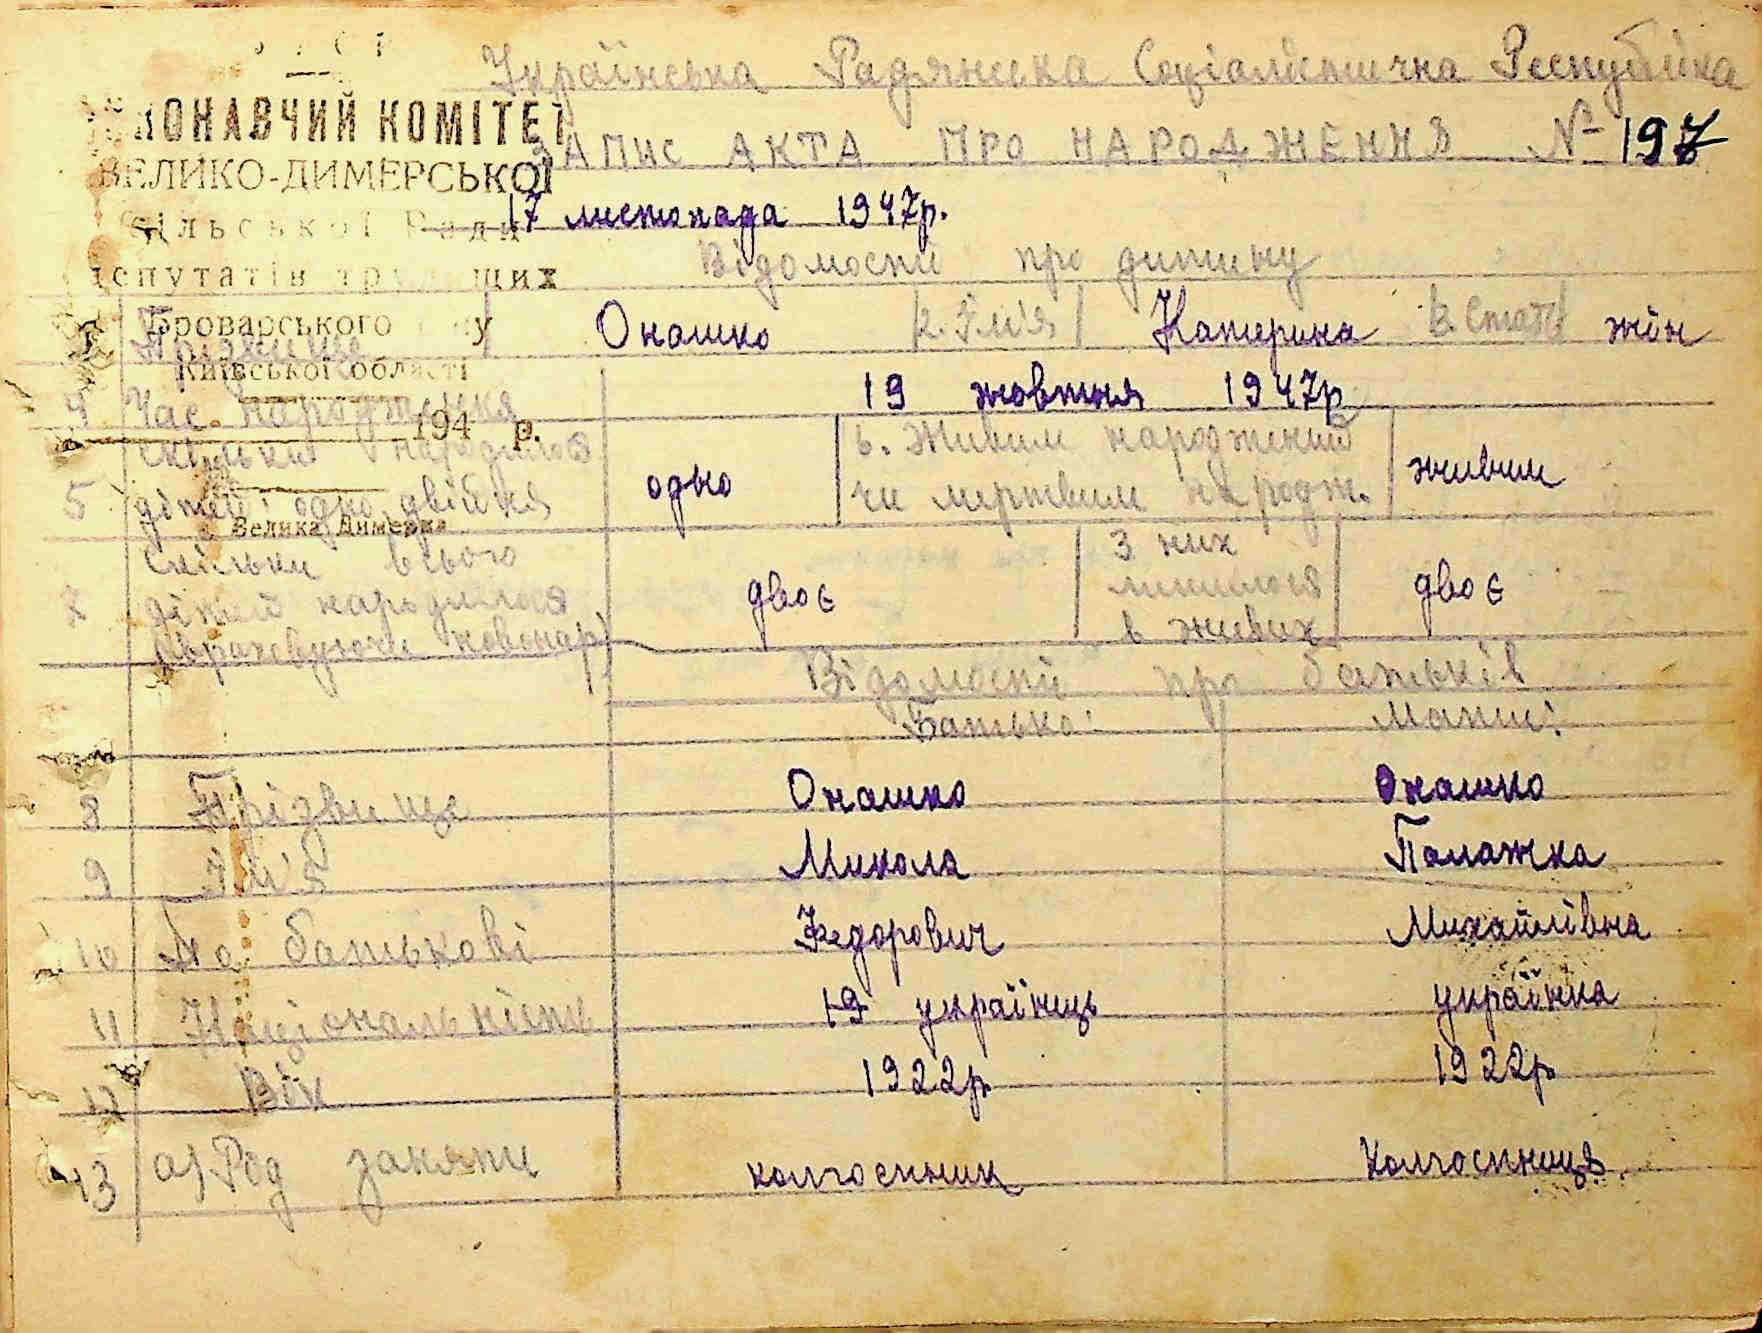 Українська Радянська Соціалистична Республіка
ВИКОНАВЧИЙ КОМІТЕТ
ЗАПИС АКТА ПРО НАРОДЖЕННЯ № 197
ВЕЛИКО-ДИМЕРСЬКОЇ
17 листопада 1947р.
Сільської Ради
депутатів трудящих
Відомости про дитину
Броварського
Прізвище Онашко 2. Ім'я Катерина 3. Стать жін
Київської області
4 Час народження 19 жовтня 1947р
194 р.
5 скільки народилося дітей: одно, двійня одно 6. Живим народжений чи мертвим народж. живим
с. Велика Димерка
7 Скільки всього дітей народилося (враховуючи новонар) двоє З них лишилося в живих двоє
Відомости про батьків
Батько: Мати:
8 Прізвище Онашко Онашко
9 Ім'я Микола Палажка
10 По батькові Федорович Михайлівна
11 Національність 19 українець українка
12 Вік 1922р 1922р
13 а) Род заняти колгоспник колгоспниця